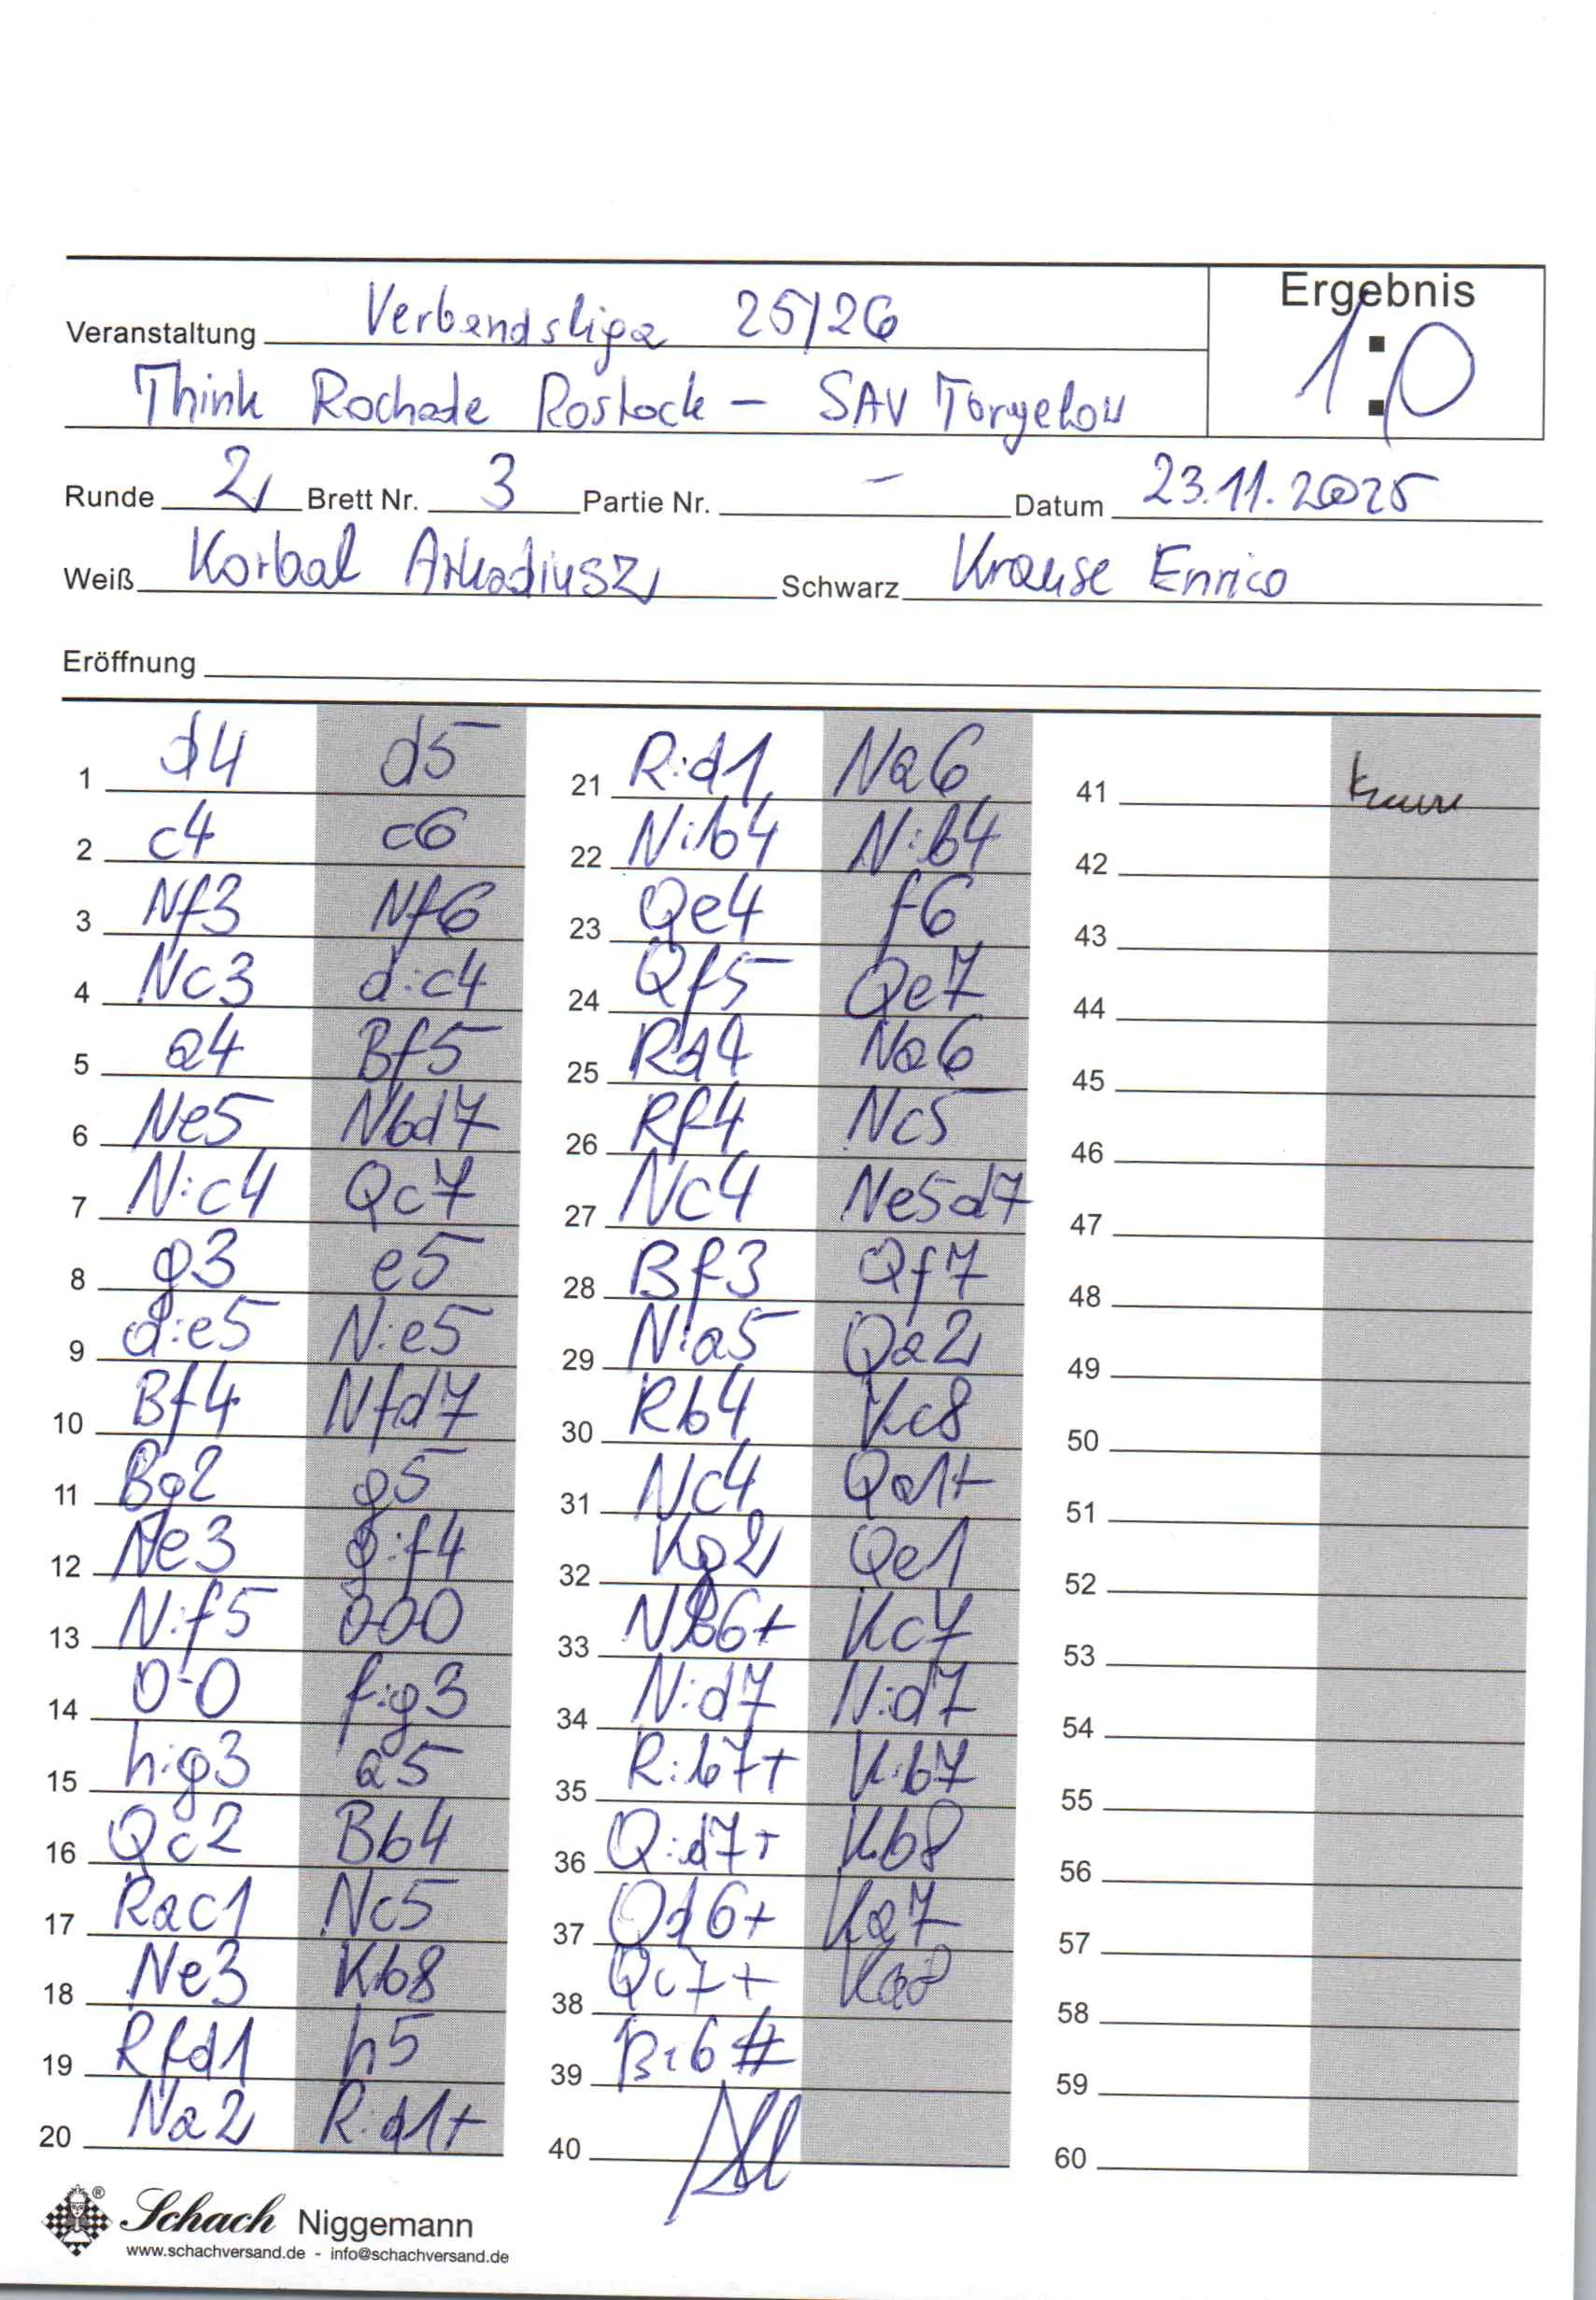 Ergebnis
1:0
Veranstaltung Verbandsliga 25/26
Think Rochade Rostock – SAV Torgelow
Runde 2 Brett Nr. 3 Partie Nr. – Datum 23.11.2025
Weiß Korbal Arkadiusz Schwarz Krause Enrico
Eröffnung
1 d4 d5
2 c4 c6
3 Nf3 Nf6
4 Nc3 d:c4
5 a4 Bf5
6 Ne5 Nbd7
7 N:c4 Qc7
8 g3 e5
9 d:e5 N:e5
10 Bf4 Nfd7
11 Bg2 g5
12 Ne3 g:f4
13 N:f5 000
14 0-0 f:g3
15 h:g3 a5
16 Qc2 Bb4
17 Rac1 Nc5
18 Ne3 Kb8
19 Rfd1 h5
20 Na2 R:d1+
21 R:d1 Na6
22 N:b4 N:b4
23 Qe4 f6
24 Qf5 Qe7
25 Rd4 Na6
26 Rf4 Nc5
27 Nc4 Ne5d7
28 Bf3 Qf7
29 N:a5 Qa2
30 Rb4 Kc8
31 Nc4 Qa1+
32 Kg2 Qe1
33 Nb6+ Kc7
34 N:d7 N:d7
35 R:b7+ K:b7
36 Q:d7+ Kb8
37 Qd6+ Ka7
38 Qc7+ Ka8
39 B:c6#
40
41
42
43
44
45
46
47
48
49
50
51
52
53
54
55
56
57
58
59
60
Schach Niggemann
www.schachversand.de - info@schachversand.de